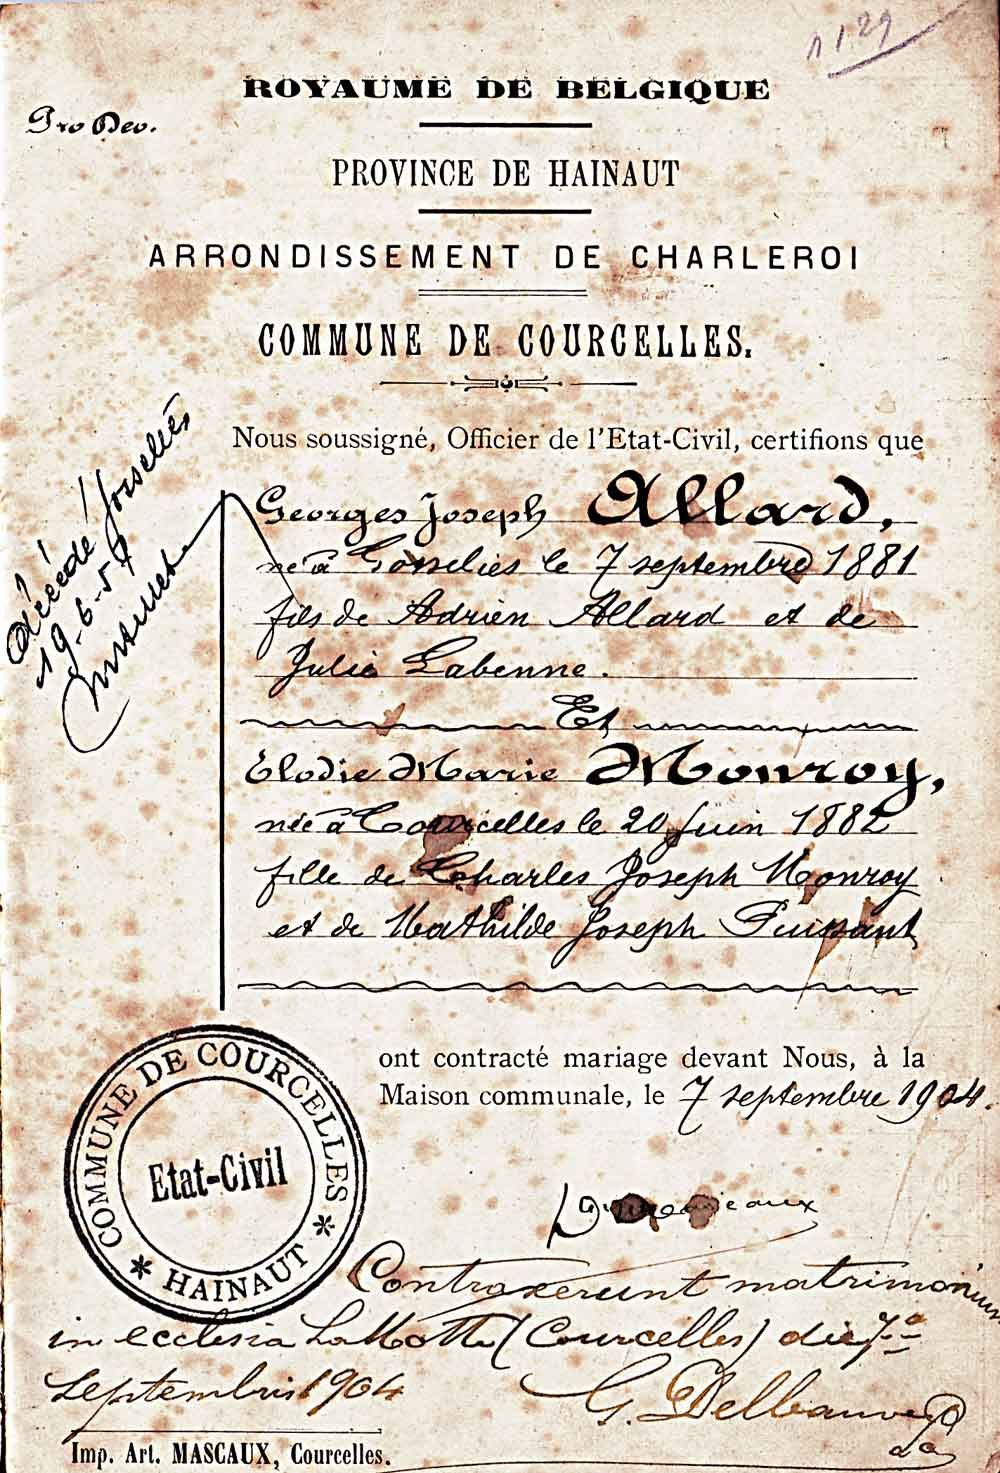 1129
ROYAUME DE BELGIQUE
Pro Deo.
PROVINCE DE HAINAUT
ARRONDISSEMENT DE CHARLEROI
COMMUNE DE COURCELLES.
Nous soussigné, Officier de l'Etat-Civil, certifions que
Georges Joseph Allard,
né à Gosselies le 7 septembre 1881
fils de Adrien Allard et de
Julie Labenne.
Et
Elodie Marie Monroy,
née à Courcelles le 20 juin 1882
fille de Charles Joseph Monroy
et de Mathilde Joseph Puissant
décédé Gosselies
19-6-57
ont contracté mariage devant Nous, à la
Maison communale, le 7 septembre 1904.
COMMUNE DE COURCELLES
Etat-Civil
* HAINAUT *
Contraxerunt matrimonium
in ecclesia La Motte (Courcelles) die 7a
septembris 1904
Imp. Art. MASCAUX, Courcelles.